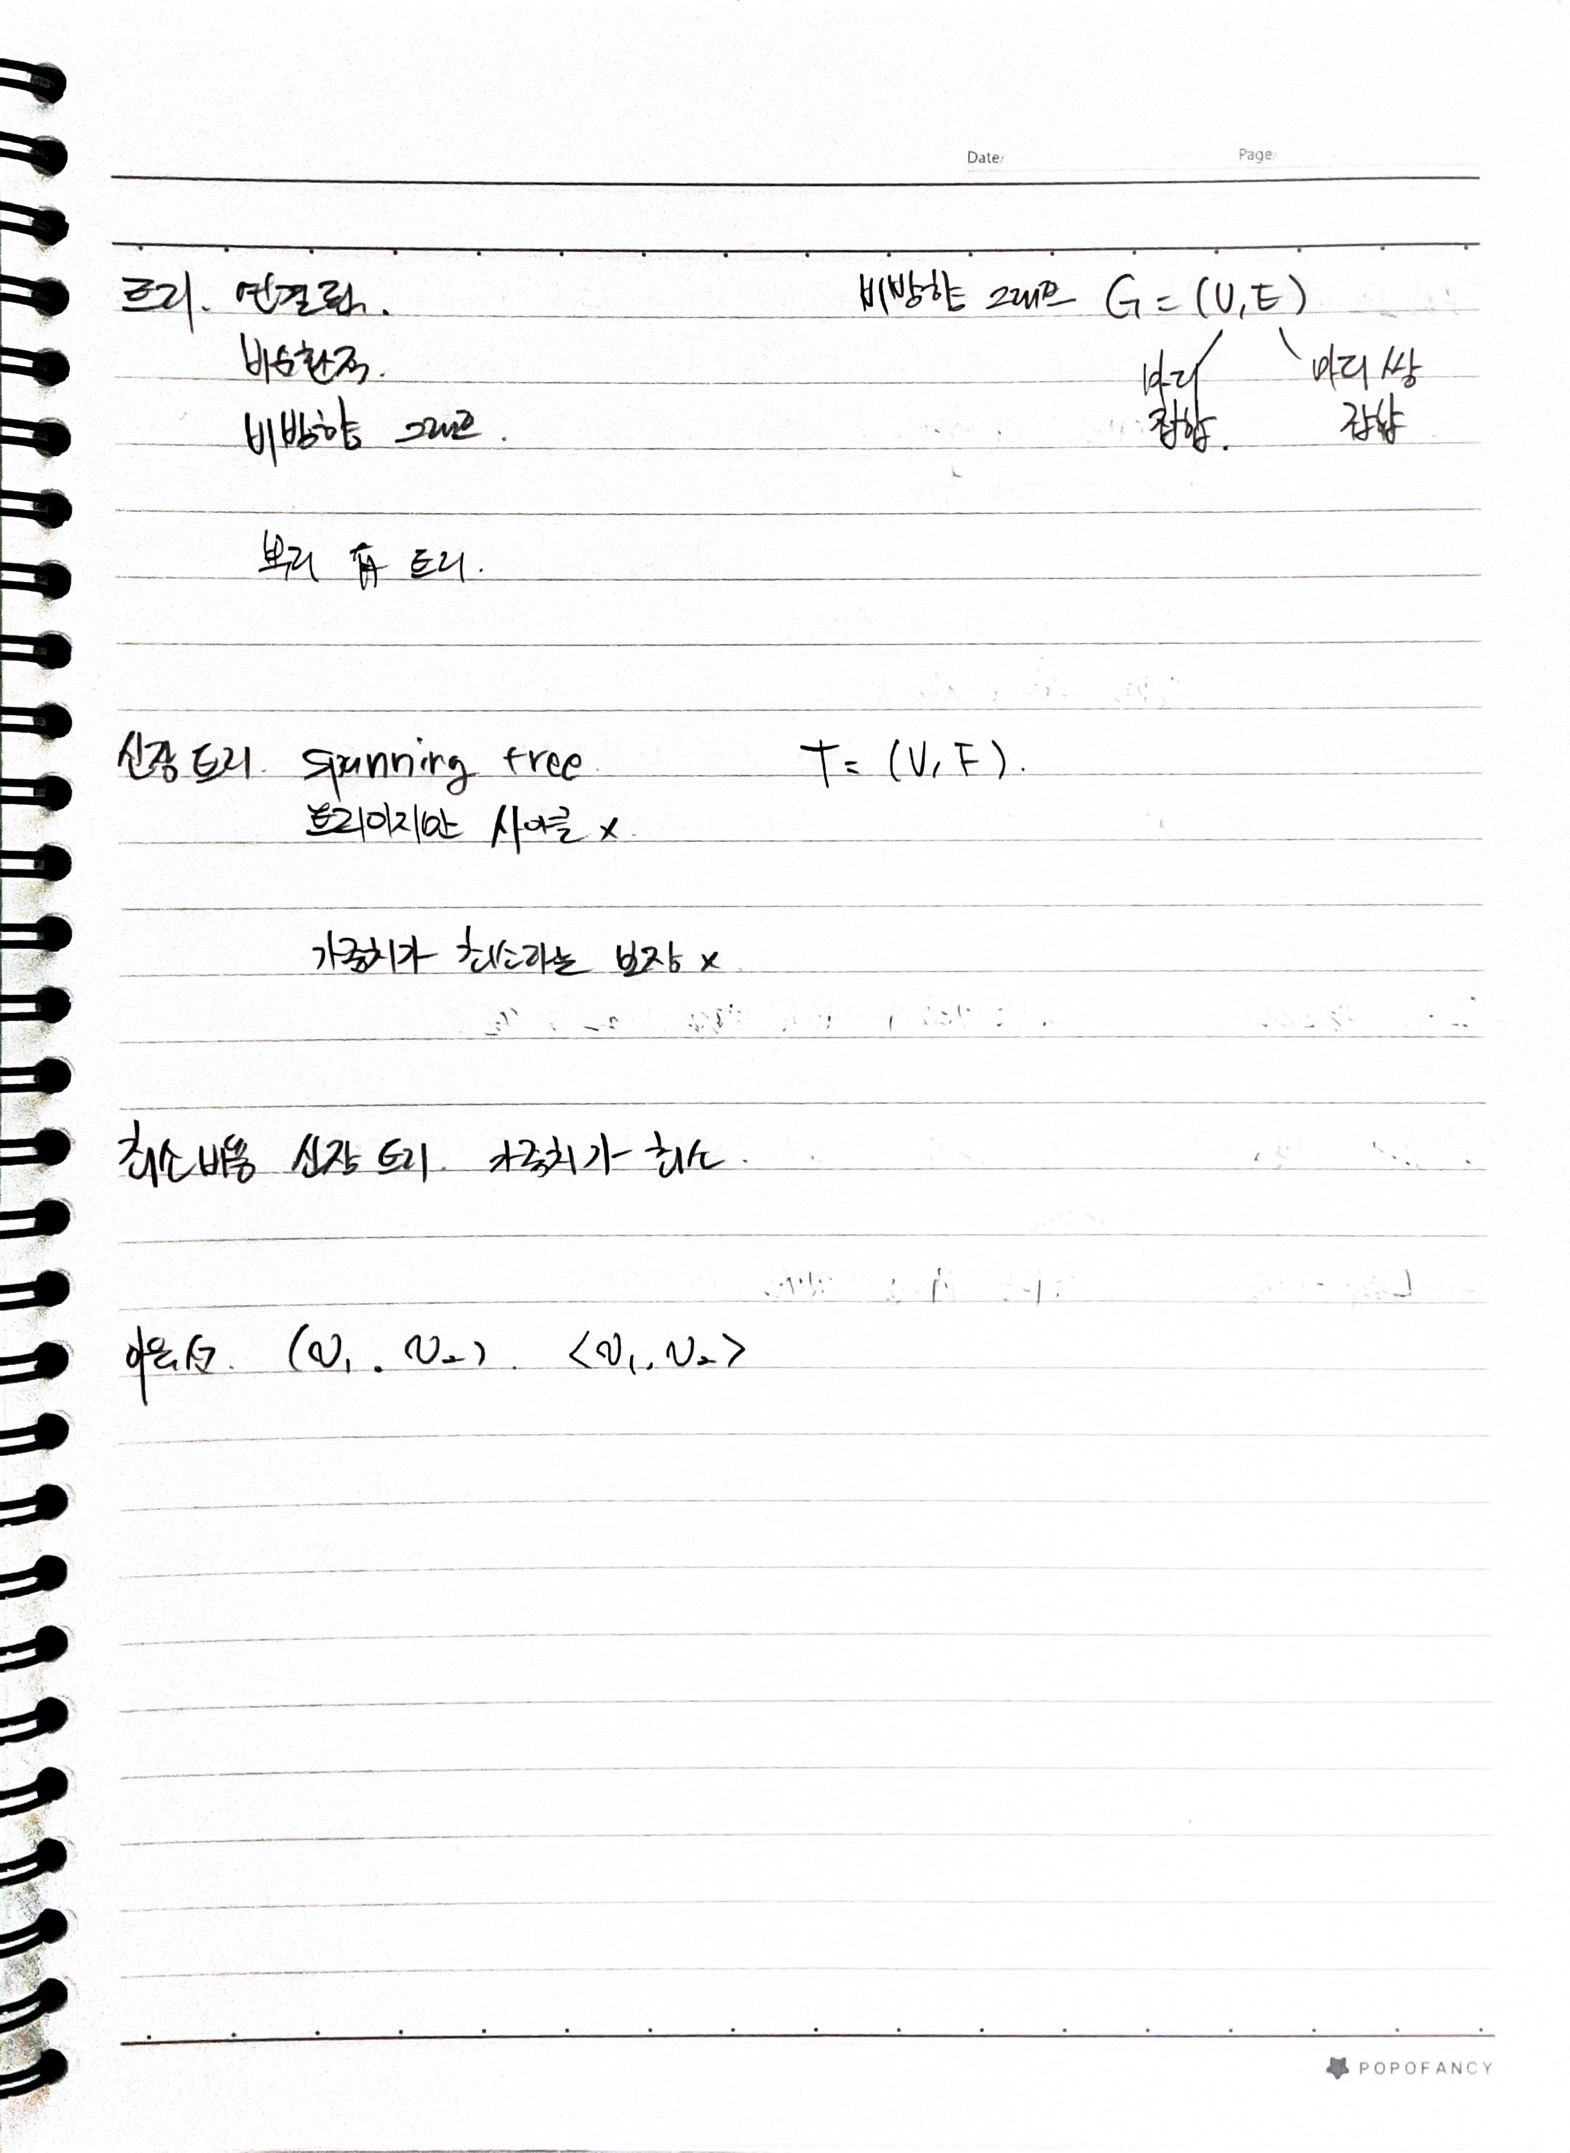 Date/ Page/
트리. 연결됨. 비방향 그래프 G = (V, E)
비순환적. 마디 마디 쌍
비방향 그래프. 집합. 집합
뿌리 有 트리.
신장 트리. spanning tree. T = (V, F).
트리이지만 사이클 x.
가중치가 최소라는 보장 x
최소비용 신장 트리. 가중치가 최소.
(v₁, v₂). <v₁, v₂>
POPOFANCY